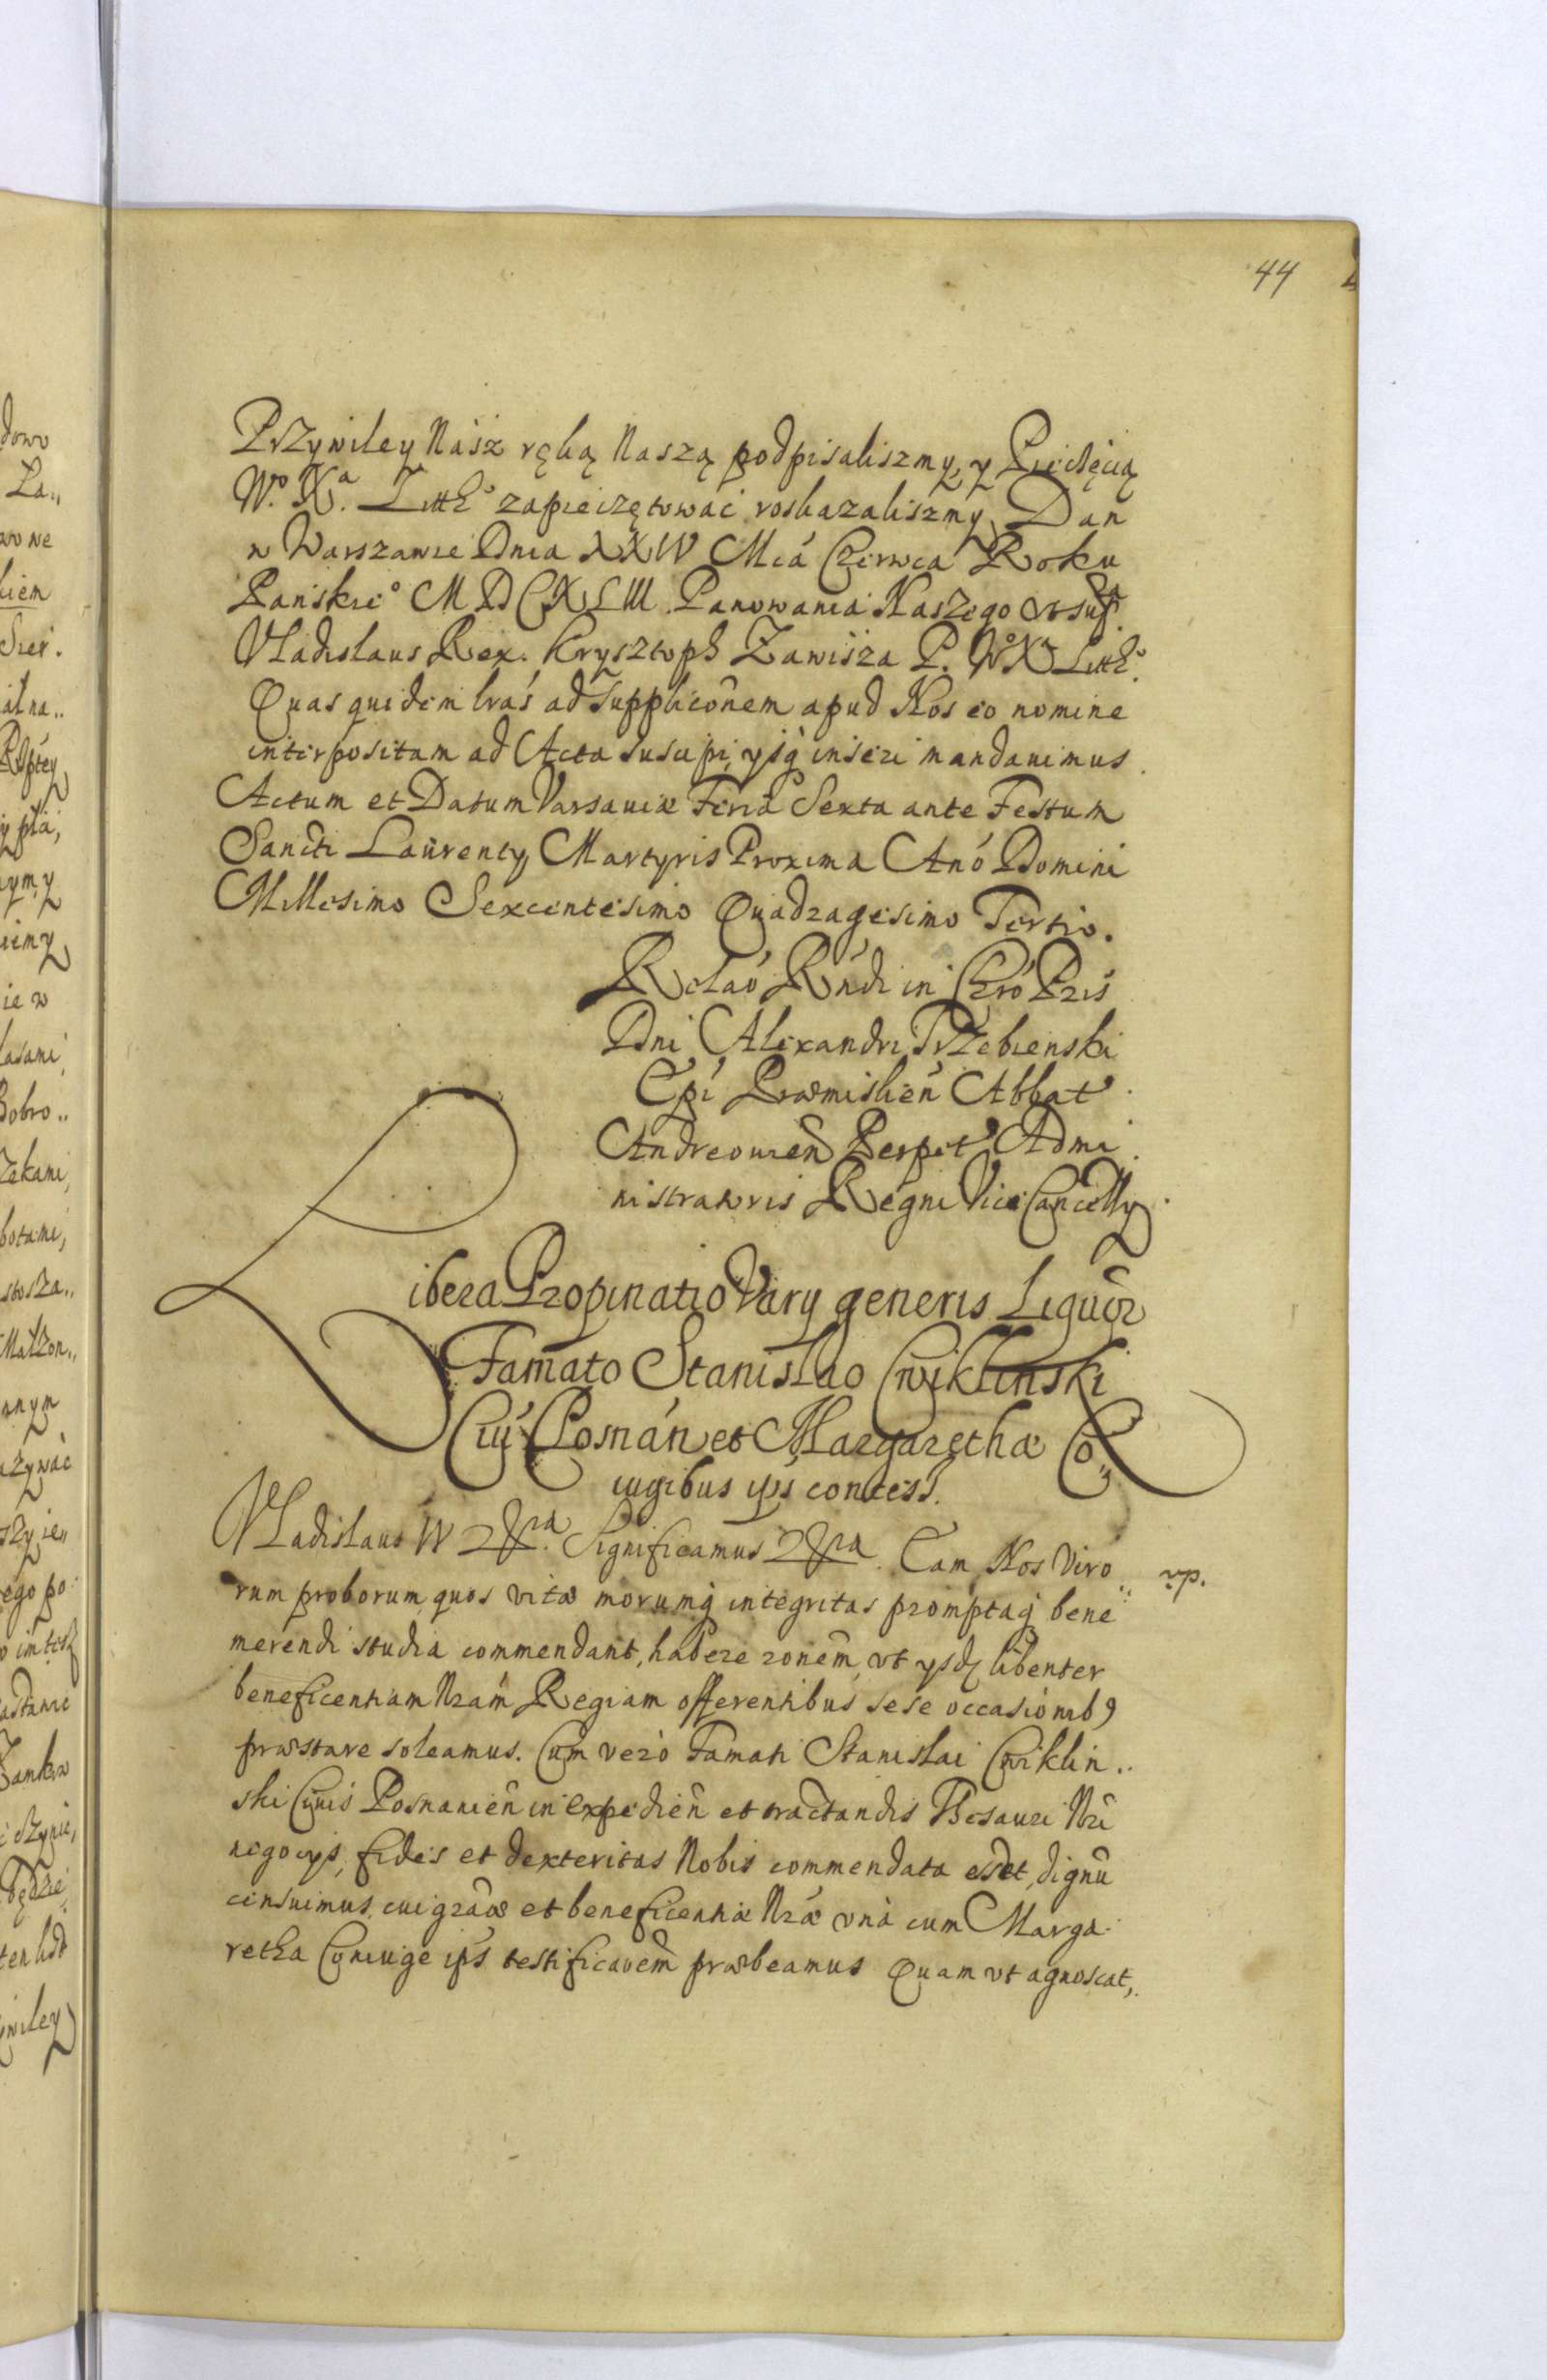 44
Przywiley Nasz ręką Naszą podpisaliszmy, y Pieczęcią
Wo. Xa. Litho zapieczętować roskazaliszmy, Dan
w Warszawie Dnia XXIV Mcá Czerwca Roku
Panskieo MDCXLIII Panowania Naszego vt supra.
Vladislaus Rex. Krysztoph Zawisza P. WoXa Litho.
Quas quidem lras ad Supplicõnem apud Nos eo nomine
interpositam ad Acta suscipi, ysq inseri mandauimus.
Actum et Datum Varsauiæ Feria Sexta ante Festum
Sancti Laurenty Martyris Proxima Anó Domini
Millesimo Sexcentesimo Quadragesimo Tertio.
Relaó Rńdi in Chró Pris
Dni Alexandri Trzebienski
Epi Præmislien Abbat
Andreouien Perpet Admi
nistratoris Regni Vice Cancelly.
Libera Propinatio Vary generis Liquor
Famato Stanislao Cwiklinski
Ciui Posnan et Margarethæ Co
iugibus ips concess.
Vladislaus IV &ra. Significamus &ra. Eam Nos Viro..
rp.
rum proborum, quos vitæ morumq integritas promptaq bene
merendi studia commendant, habere ronem, vt ysd libenter
beneficentiam Nram Regiam offerentibus sese occasionib9
præstare soleamus. Cum vero Famati Stanislai Cwiklin..
ski Ciuis Posnanien in expedien et tractandis Thesauri Nri
negocys, fides et dexteritas Nobis commendata esset, dignu
censuimus, cui graæ et beneficentiæ Nræ vnà cum Marga
retha Coniuge ips testificaoem præbeamus Quam vt agnoscat,